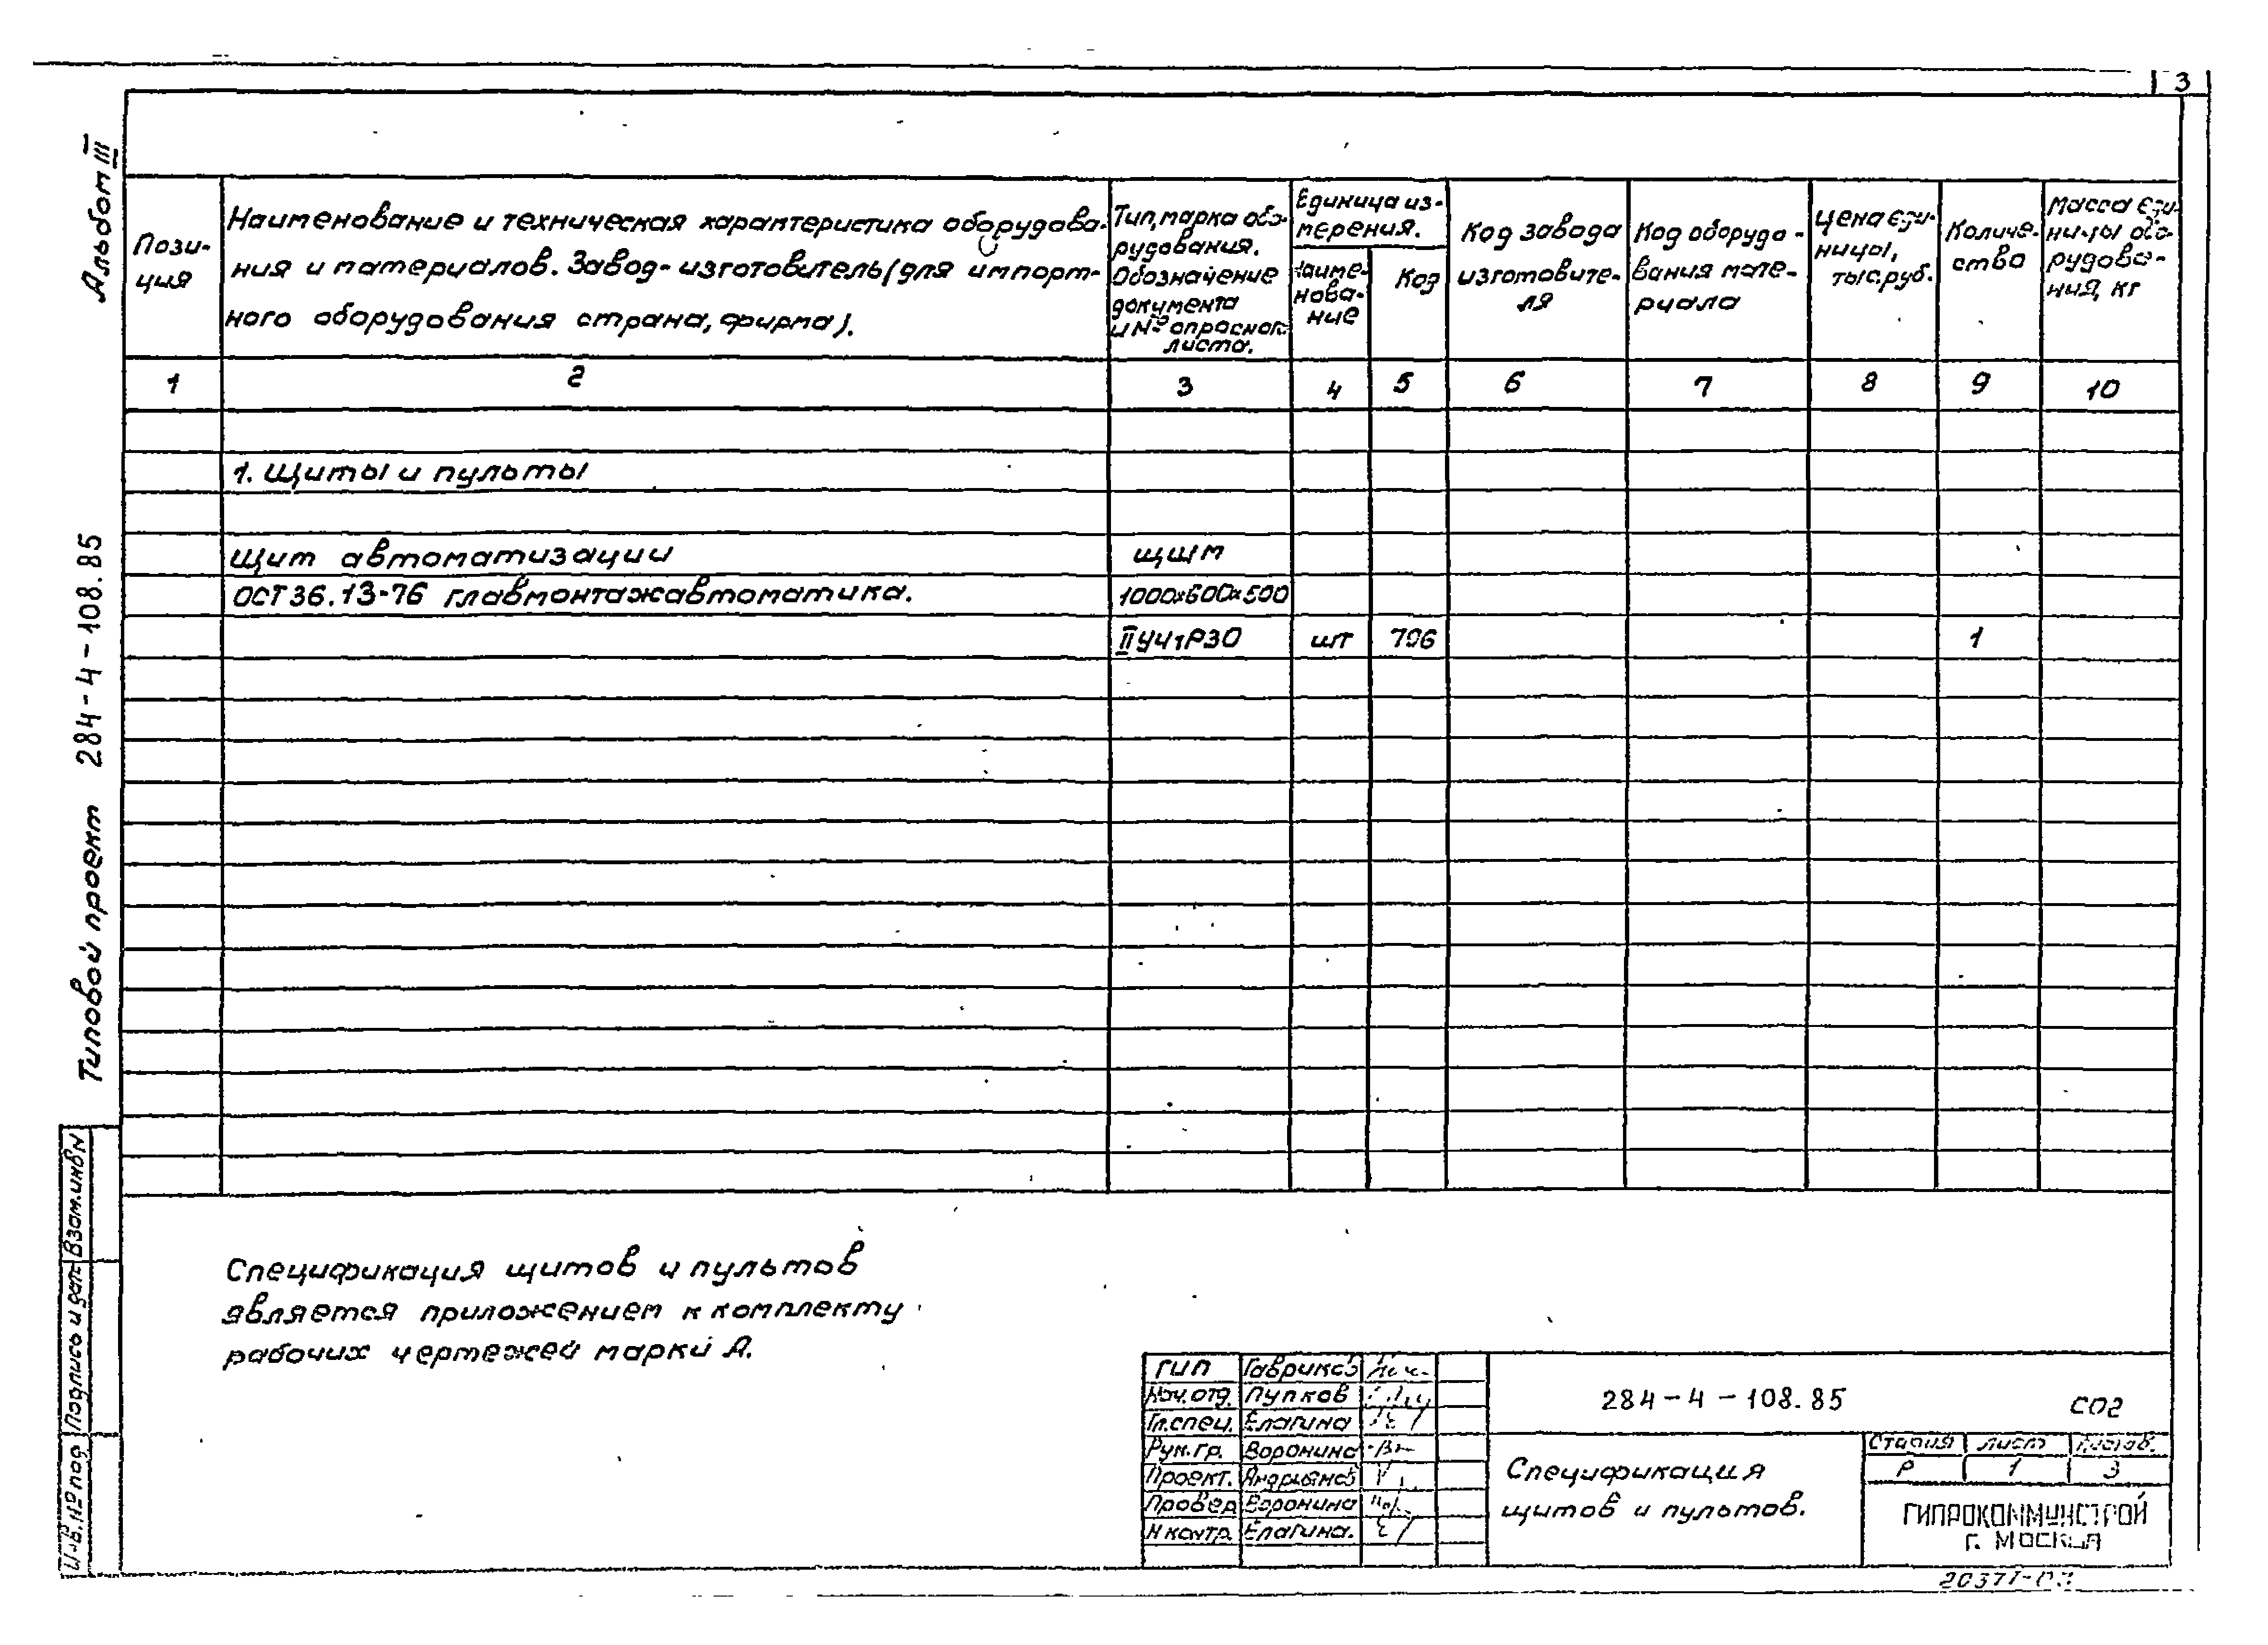 3
Альбом III
Типовой проект 284-4-108.85
Пози-
ция
Наименование и техническая характеристика оборудова-
ния и материалов. Завод-изготовитель (для импорт-
ного оборудования страна, фирма).
Тип, марка обо-
рудования.
Обозначение
документа
и № опросного
листа.
Единица из-
мерения.
Наиме-
нова-
ние
Код
Код завода
изготовите-
ля
Код оборудо-
вания мате-
риала
Цена еди-
ницы,
тыс.руб.
Количе-
ство
Масса еди-
ницы обо-
рудова-
ния, кг
1 2 3 4 5 6 7 8 9 10
1. Щиты и пульты
Щит автоматизации ЩШМ
ОСТ 36.13-76 главмонтажавтоматика. 1000х600х500
II УЧ1Р30 шт 796 1
Спецификация щитов и пультов
является приложением к комплекту
рабочих чертежей марки А.
Взам.инв.N
Подпись и дата
Инв.№ под
ГИП Гавриков
Нач.отд. Пупков
Гл.спец. Елагина
Рук.гр. Воронина
Проект. Андрианов
Провер Воронина
Н контр. Елагина.
284-4-108.85 СО2
Спецификация
щитов и пультов.
Стадия Лист Листов.
Р 1 3
ГИПРОКОММУНСТРОЙ
г. Москва